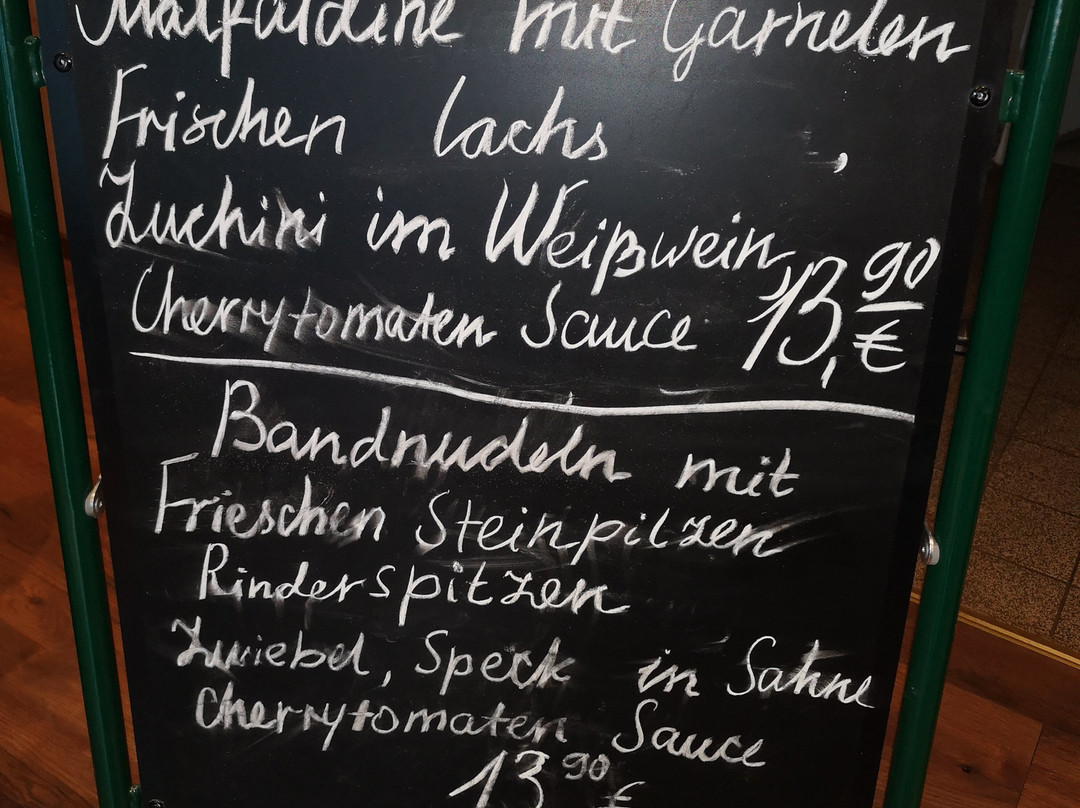 Malfaldine mit Garnelen
Frischen lachs ,
Zuchini im Weißwein,
Cherrytomaten Sauce 13,90 €
Bandnudeln mit
Frieschen Steinpilzen
Rinderspitzen
Zwiebel, Speck in Sahne
Cherrytomaten Sauce
13 90 €